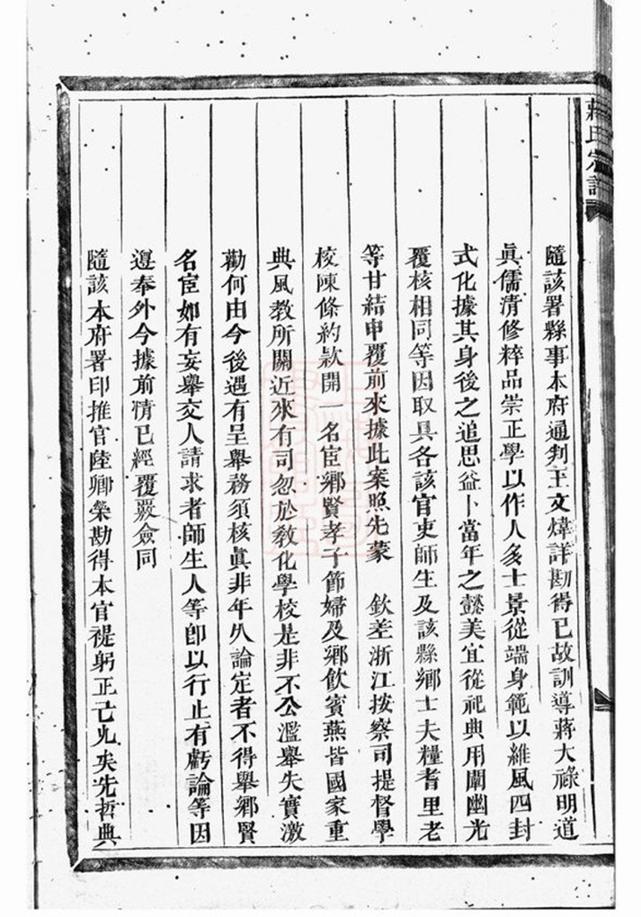 蔣氏宗譜
隨該署縣事本府通判王文煒詳勘得已故訓導蔣大祿明道
眞儒清修粹品崇正學以作人多士景從端身範以維風四封
式化據其身後之追思益卜當年之懿美宜從祀典用闡幽光
覆核相同等因取具各該官吏師生及該縣鄉士夫糧耆里老
等甘結申覆前來據此案照先蒙 欽差浙江按察司提督學
校陳條約款開一名宦鄉賢孝子節婦及鄉飲賓燕皆國家重
典風教所關近來有司忽於教化學校是非不公濫舉失實激
勸何由今後遇有呈舉務須核眞非年久論定者不得舉鄉賢
名宦如有妄舉交人請求者師生人等卽以行止有虧論等因
遵奉外今據前情已經覆覈僉同
隨該本府署印推官陸卿榮勘得本官禔躬正己允矣先哲典